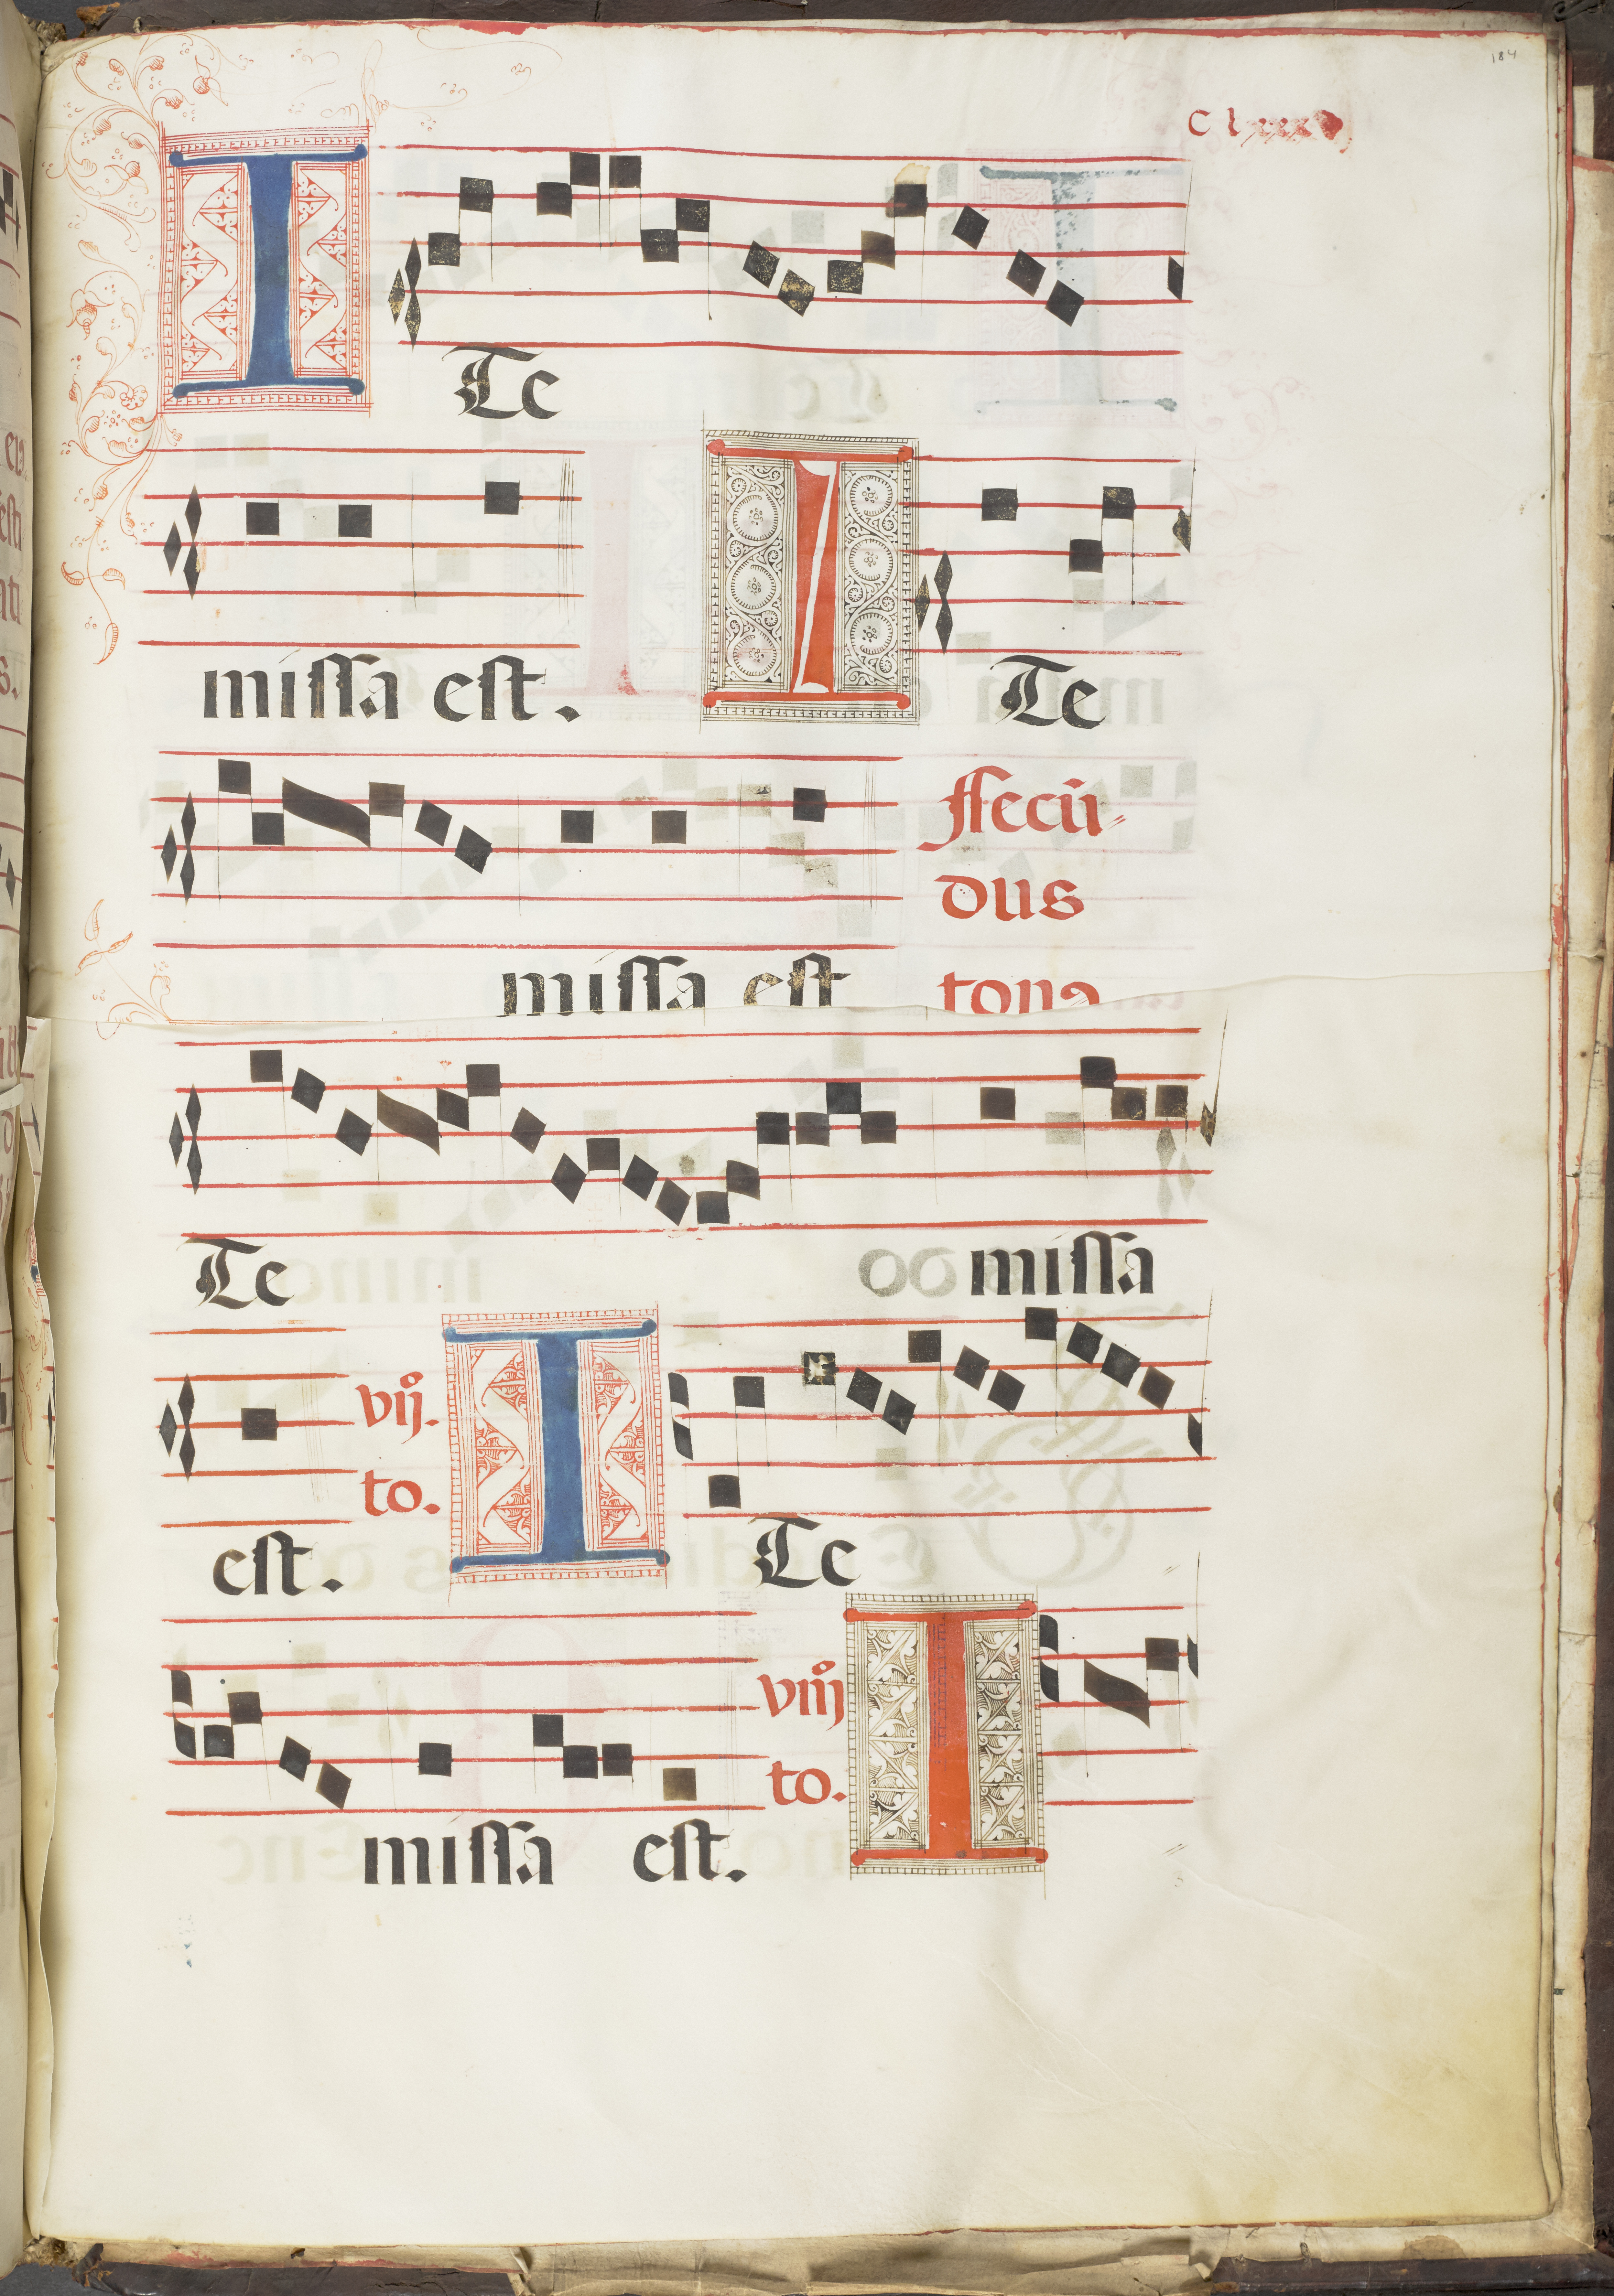 184
C lxxx
I Te
missa est. I Te
secū
dus
missa est tonꝰ
Te missa
est. vijº. to. I Te
missa est. viijº to. I